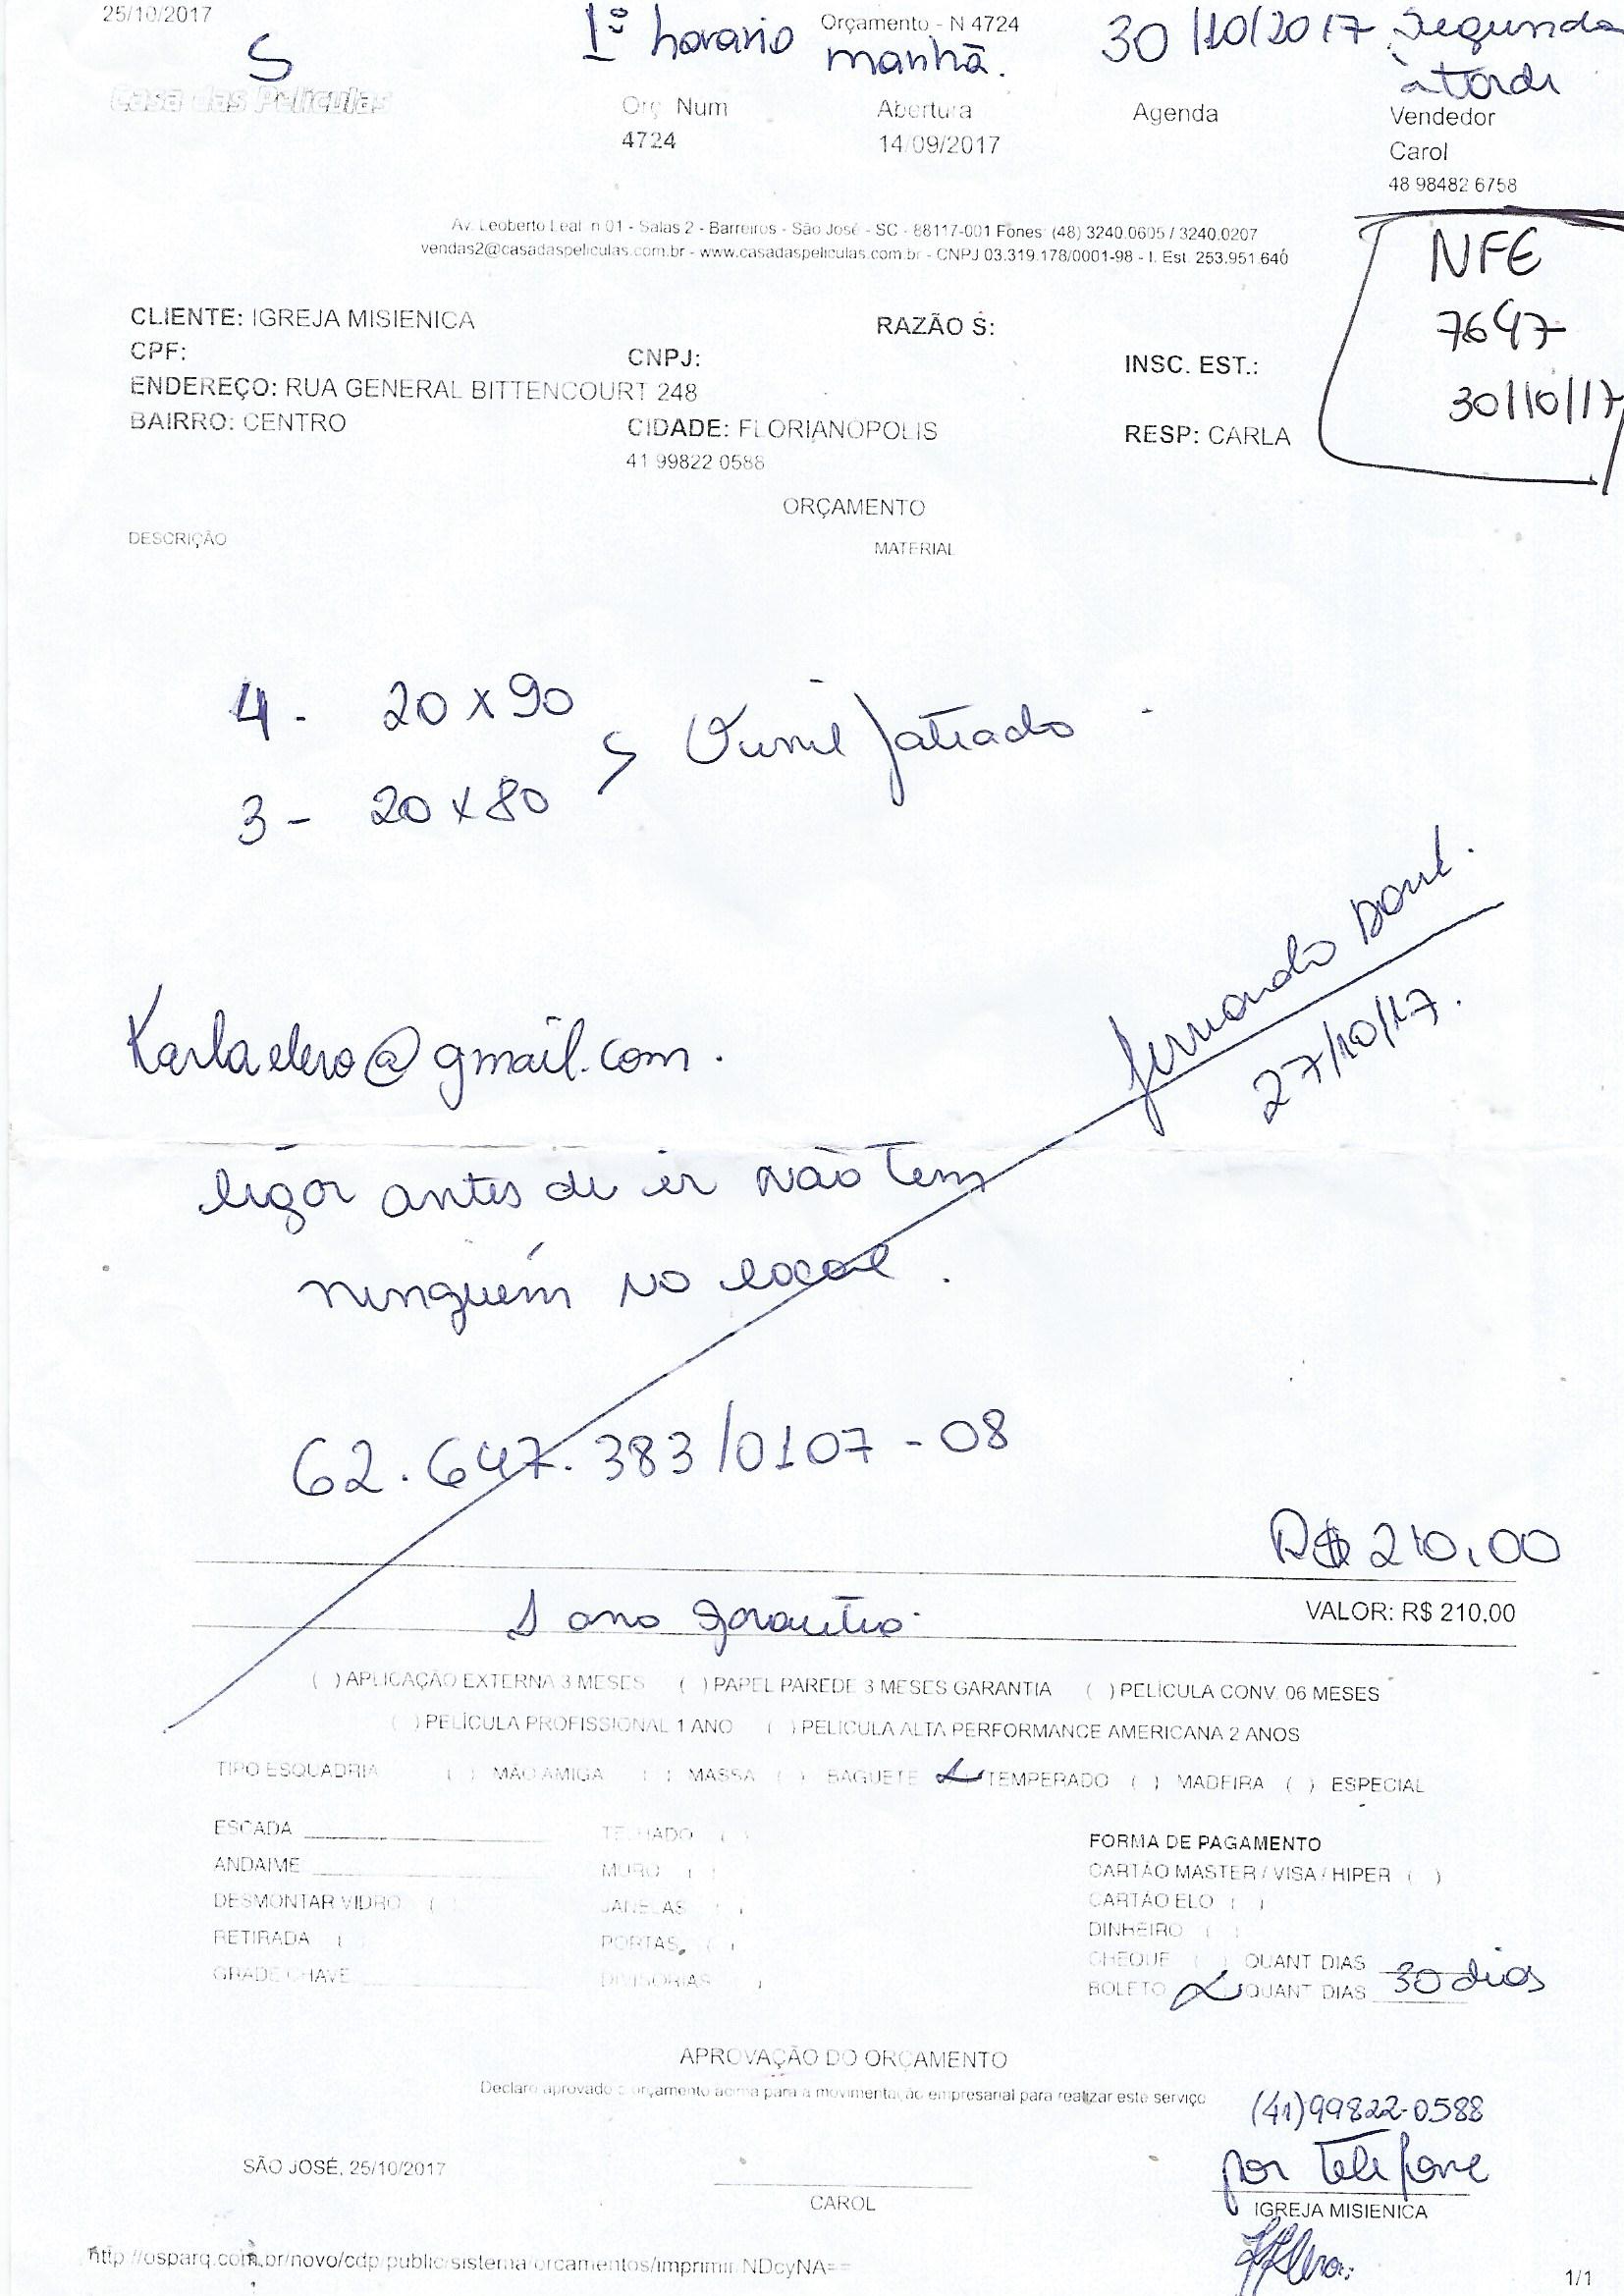 25/10/2017
1º horario manhã.
Orçamento - N 4724
30/10/2017 Segunda
à tarde
S
Casa das Películas
Orç Num
4724
Abertura
14/09/2017
Agenda
Vendedor
Carol
48 98482 6758
Av. Leoberto Leal, n 01 - Salas 2 - Barreiros - São José - SC - 88117-001 Fones: (48) 3240.0605 / 3240.0207
vendas2@casadaspeliculas.com.br - www.casadaspeliculas.com.br - CNPJ 03.319.178/0001-98 - I. Est. 253.951.640
NFE
7647
30/10/17
CLIENTE: IGREJA MISIENICA
RAZÃO S:
CPF:
CNPJ:
INSC. EST.:
ENDEREÇO: RUA GENERAL BITTENCOURT 248
BAIRRO: CENTRO
CIDADE: FLORIANOPOLIS
RESP: CARLA
41 99822 0588
ORÇAMENTO
DESCRIÇÃO
MATERIAL
4 - 20 x 90
3 - 20 x 80
Vinil Jateado
Fernando
27/10/17.
Karlaelero@gmail.com.
ligar antes de ir não tem
ninguém no local.
62.647.383/0107-08
R$ 210,00
1 ano garantia.
VALOR: R$ 210,00
( ) APLICAÇÃO EXTERNA 3 MESES ( ) PAPEL PAREDE 3 MESES GARANTIA ( ) PELÍCULA CONV. 06 MESES
( ) PELÍCULA PROFISSIONAL 1 ANO ( ) PELICULA ALTA PERFORMANCE AMERICANA 2 ANOS
TIPO ESQUADRIA ( ) MAO AMIGA ( ) MASSA ( ) BAGUETE TEMPERADO ( ) MADEIRA ( ) ESPECIAL
ESCADA
TELHADO ( )
FORMA DE PAGAMENTO
ANDAIME
MURO ( )
CARTÃO MASTER / VISA / HIPER ( )
DESMONTAR VIDRO ( )
JANELAS ( )
CARTÃO ELO ( )
RETIRADA ( )
PORTAS ( )
DINHEIRO ( )
GRADE CHAVE
DIVISORIAS ( )
CHEQUE ( ) QUANT DIAS
BOLETO QUANT DIAS 30 dias
APROVAÇÃO DO ORÇAMENTO
Declaro aprovado o orçamento acima para a movimentação empresarial para realizar este serviço
(41) 99822-0588
por telefone
SÃO JOSÉ, 25/10/2017
CAROL
IGREJA MISIENICA
http://osparq.com.br/novo/cdp/public/sistema/orcamentos/imprimir/NDcyNA==
1/1